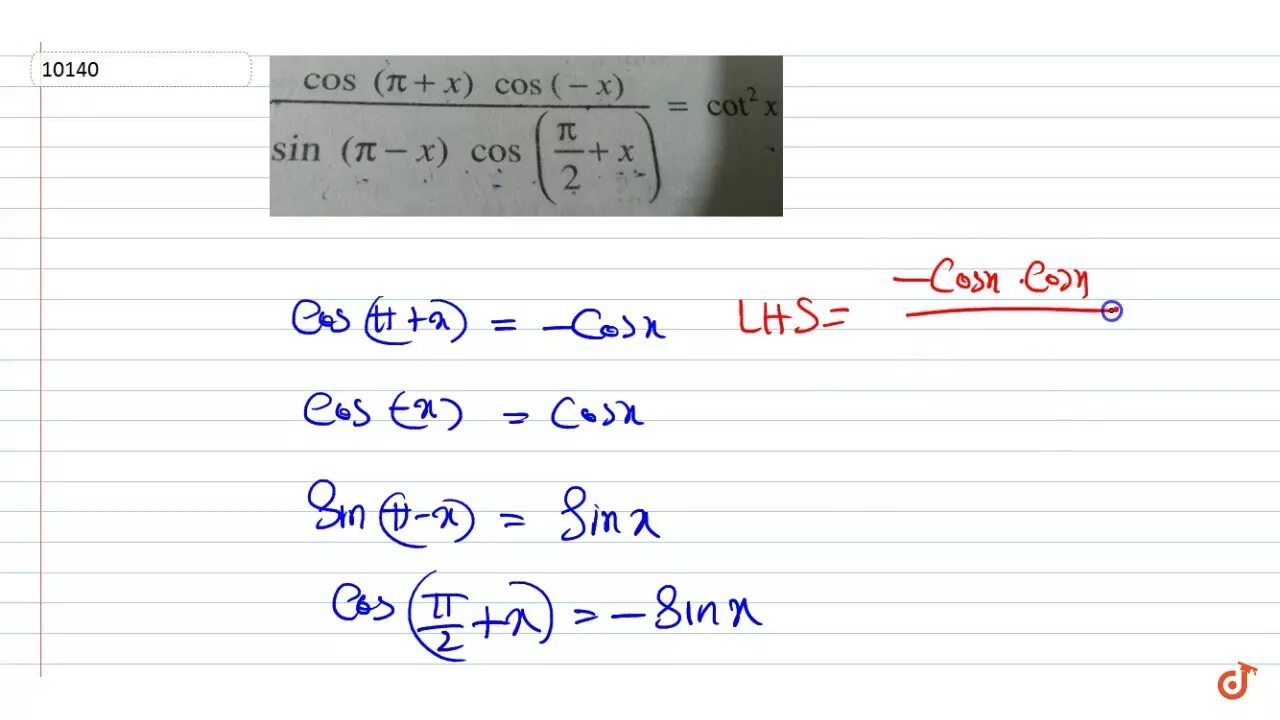 10140
cos (π + x) cos (− x)
sin (π − x) cos (π/2 + x)
= cot² x
Cos (π + x) = −Cosx
LHS =
−Cosx . Cosx
Cos (−x) = Cosx
Sin (π − x) = Sin x
Cos (π/2 + x) = − Sin x